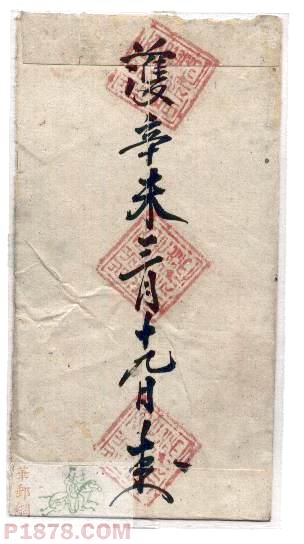 護辛未三月十九日柬
華郵網
P1878.COM